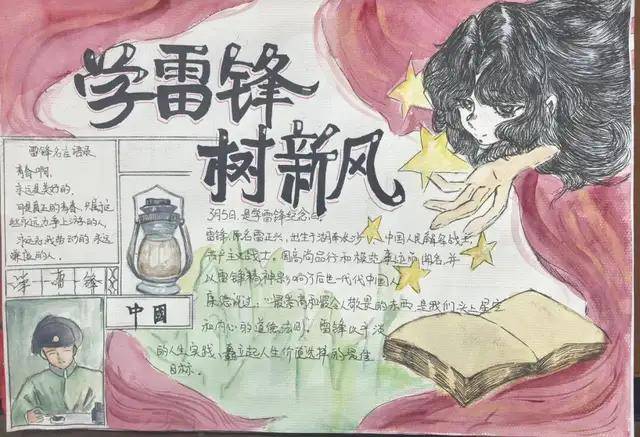 学雷锋
树新风
雷锋名言语录
青春啊,
永远是美好的,
可是真正的青春,只属于这
些永远力争上游的人,
永远忘我劳动的人,永远
谦虚的人。
学雷锋
中國
3月5日,是学雷锋纪念日,
雷锋,原名雷正兴,出生于湖南长沙,中国人民解放战士,
共产主义战士,因高尚品行和模范事迹而闻名,并
以雷锋精神影响了后世代代中国人
康德说过,"最崇高和最令人敬畏的东西,是我们头上星空
和内心的道德法则,雷锋以平淡
的人生实践,矗立起人生价值选择的最佳
目标。